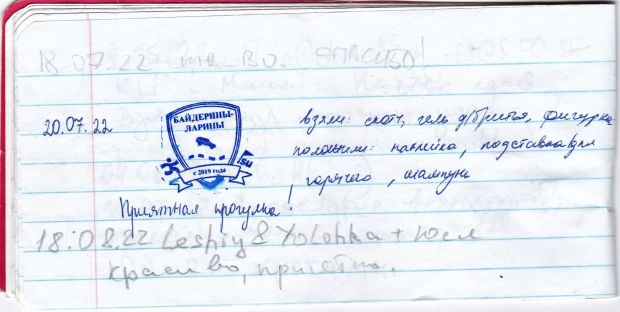 18.07.22 СПАСИБО!
20.07.22
БАЙДЕРИНЫ-
ЛАРИНЫ
с 2019 года
SU
взяли: скотч, гель д/бритья, фигурка
положили: наклейка, подставка для
горячего, шампунь
Приятная прогулка!
18.08.22 Leshiy & Yolohka +
красиво, приятно.